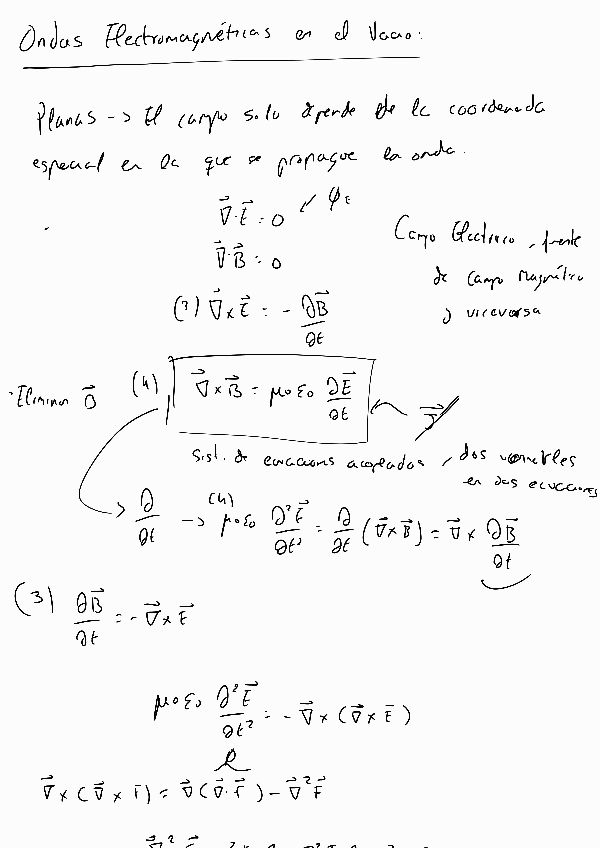 Ondas Electromagnéticas en el Vacío:
Planas -> El campo solo depende de la coordenada
espacial en la que se propague la onda.
∇⃗·E⃗ = 0
∇⃗·B⃗ = 0
Campo Eléctrico, fuente
de campo magnético
y viceversa
(3) ∇⃗×E⃗ = - ∂B⃗/∂t
Eliminar B⃗
(4) ∇⃗×B⃗ = μ₀ε₀ ∂E⃗/∂t
J⃗
Sist. de ecuaciones acopladas, dos variables
en dos ecuaciones
∂/∂t -> (4) μ₀ε₀ ∂²E⃗/∂t² = ∂/∂t (∇⃗×B⃗) = ∇⃗× ∂B⃗/∂t
(3) ∂B⃗/∂t = -∇⃗×E⃗
μ₀ε₀ ∂²E⃗/∂t² = -∇⃗×(∇⃗×E⃗)
∇⃗×(∇⃗×F⃗) = ∇⃗(∇⃗·F⃗) - ∇⃗²F⃗